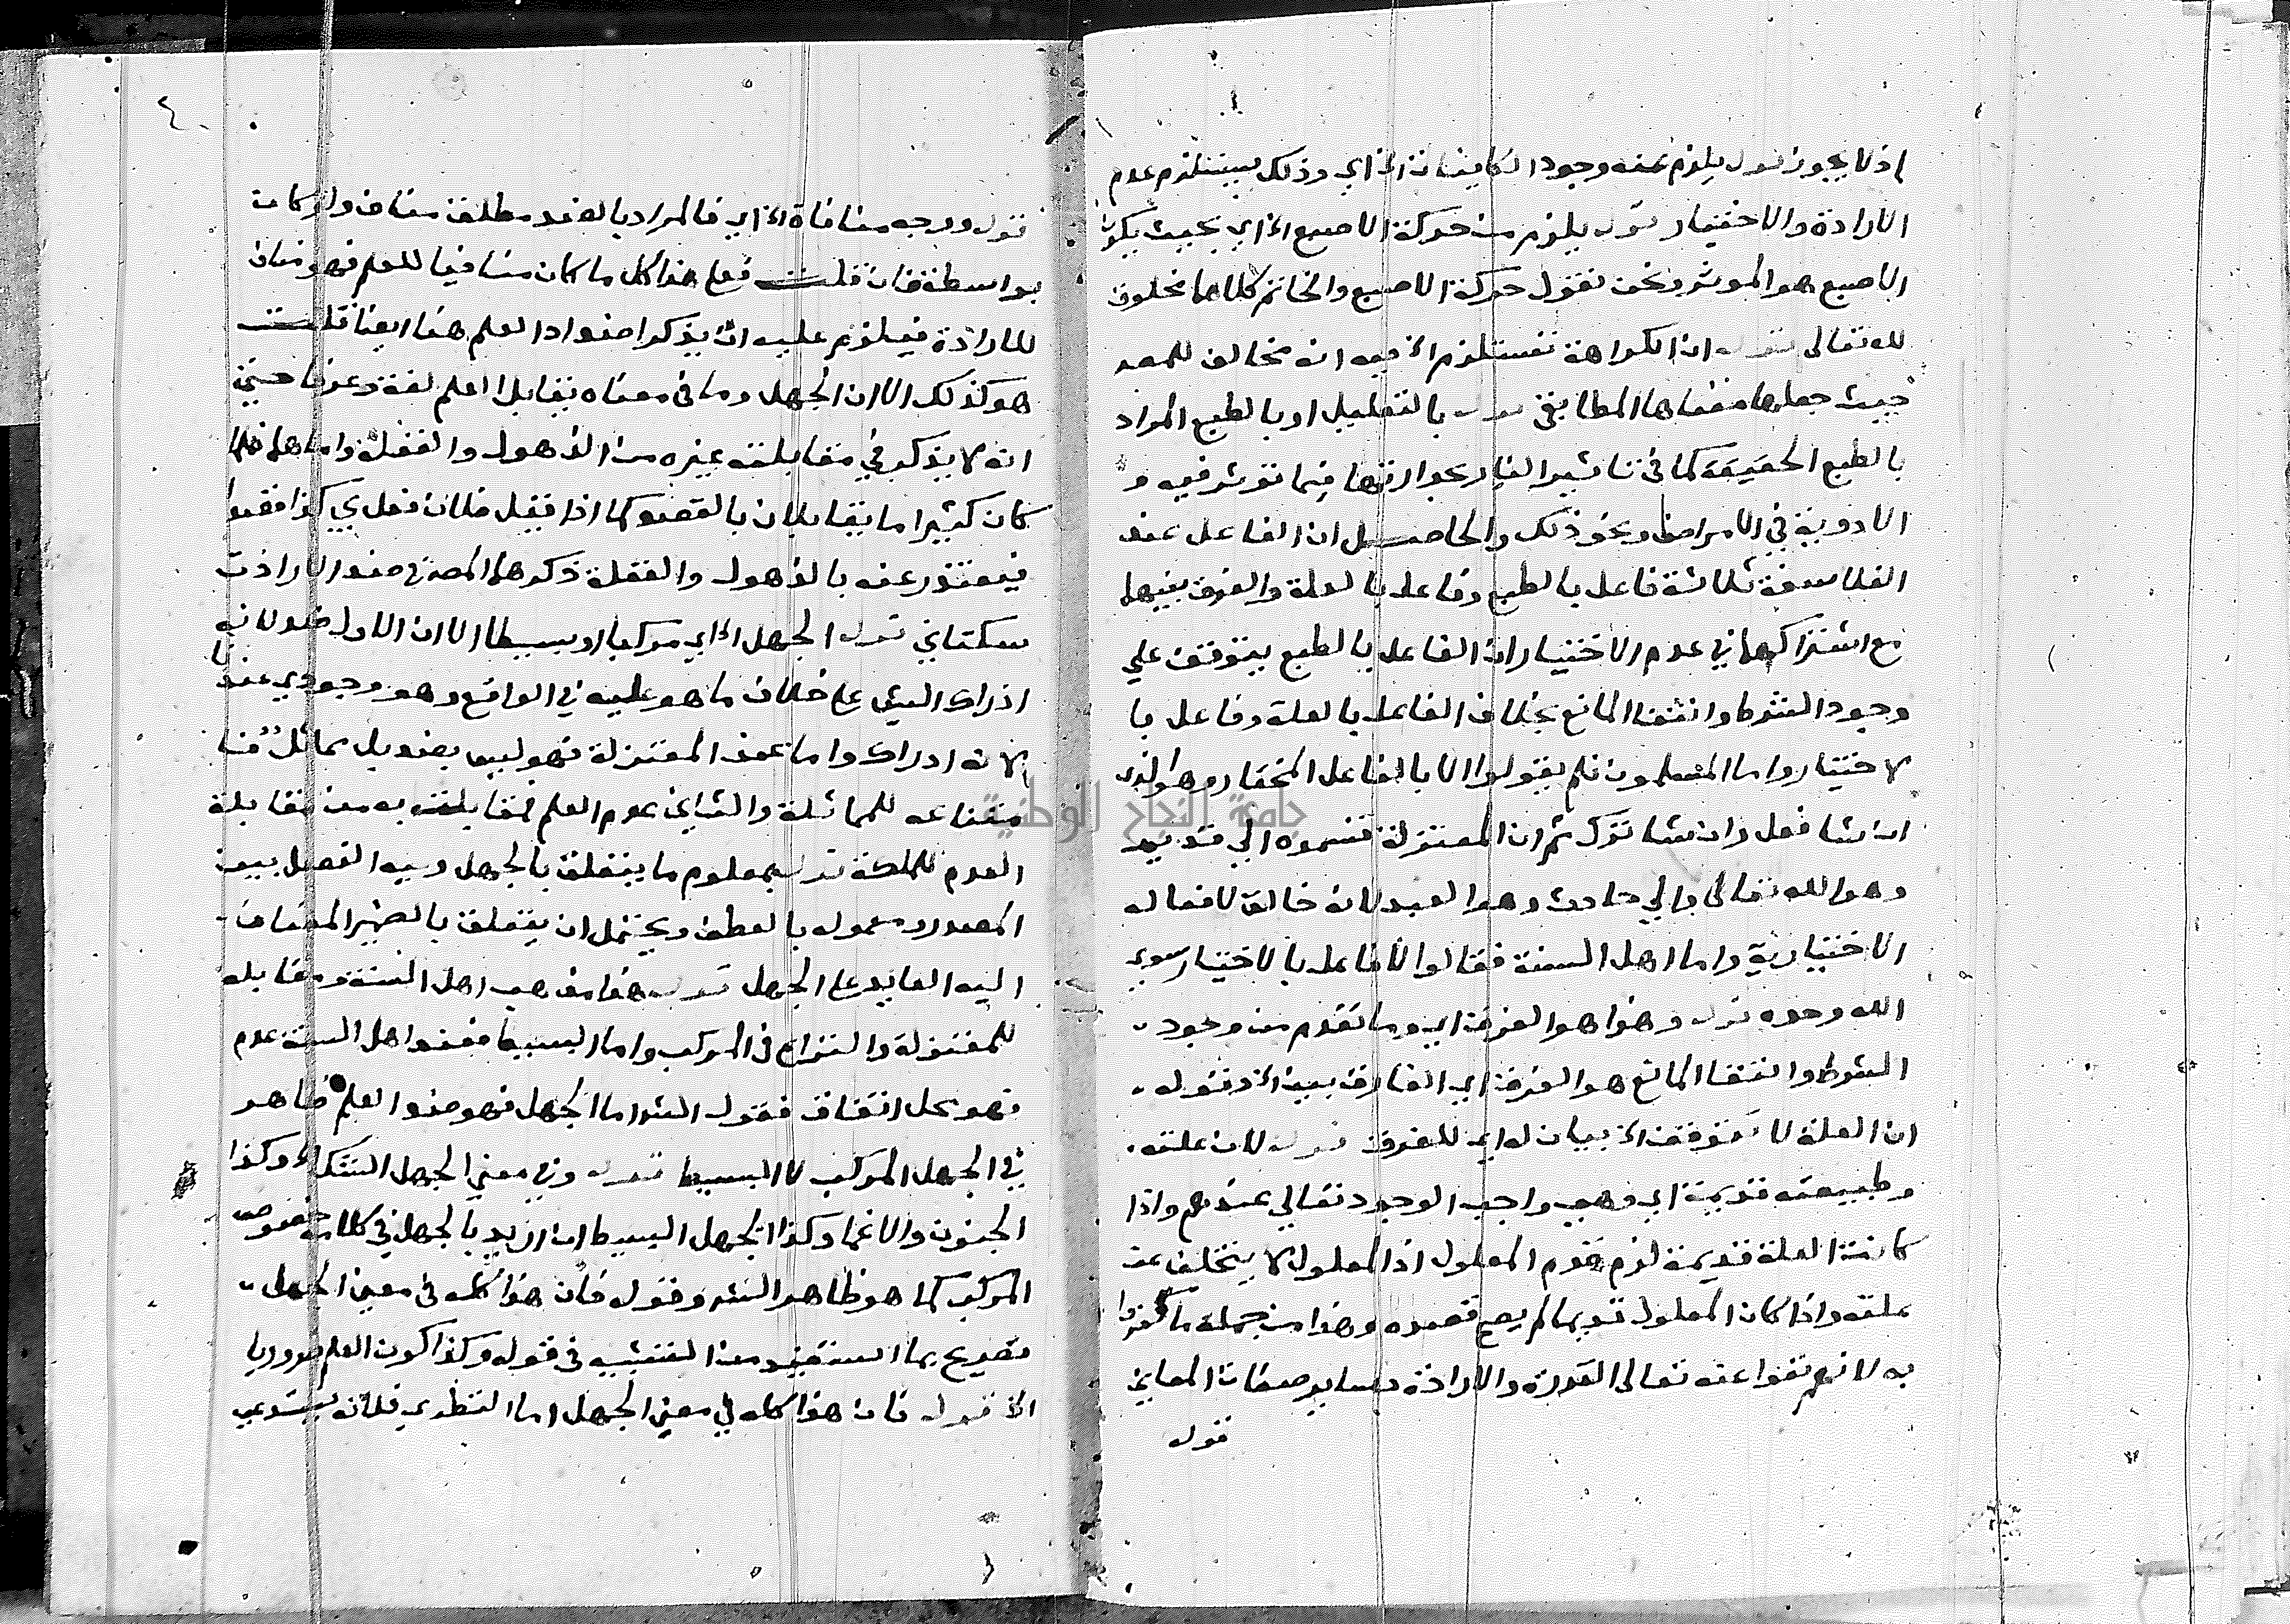 اذ لا يجوز قوله يلزم عنه وجود الكاينات الخ اي وذلك يستلزم عدم
الارادة والاختيار قوله يلزم من حركة الاصبع الخ اي بحيث يكون
الاصبع هو الموثر ونحن نقول حركة الاصبع والخاتم كلاهما مخلوق
لله تعالى قوله ان الكراهة تستلزم الخ فيه انه مخالف للمصـ
حيث جعلها معناها المطابقي قوله بالتعليل او بالطبع المراد
بالطبع الحقيقة كما في تاثير النار بحرارتها فيما توثر فيه و
الادوية في الامراض ونحو ذلك والحاصل ان الفاعل عند
الفلاسفة ثلاثة فاعل بالطبع وفاعل بالعلة والفرق بينهما
مع اشتراكهما في عدم الاختيار ان الفاعل بالطبع يتوقف علي
وجود الشرط وانتفا المانع بخلاف الفاعل بالعلة وفاعل با
لاختيار واما المسلمون فلم يقولوا الا بالفاعل المختار وهو الذي
ان شا فعل وان شا ترك ثم ان المعتزلة قسموه الي قديم
وهو الله تعالى والي حادث وهو العبد لانه خالق لافعاله
الاختيارية واما اهل السنة فقالوا لا فاعل بالاختيار سوي
الله وحده قوله وهذا هو الفرق اي وما تقدم من وجود
الشرط وانتفا المانع هو الفرق اي الفارق بين الخ وقوله
ان العلة لا تتوقف الخ بيان له اي للفرق قوله لان علته
وطبيعته قديمة اي وهي واجب الوجود تعالي عندهم واذا
كانت العلة قديمة لزم قدم المعلول اذ المعلول لا يتخلف عن
علته واذا كان المعلول قديما لم يصح قصده وهذا من جملة ما كفروا
به لانهم نفوا عنه تعالى القدرة والارادة وساير صفات المعاني
قوله
٤٠
قوله ووجه منافاة الخ اي فالمراد بالضد مطلق مناف ولو كانت
بواسطة فان قلت فعلي هذا كل ما كان منافيا للعلم فهو مناف
للارادة فيلزم عليه ان يذكر اضداد العلم هنا ايضا قلت
هو كذلك الا ان الجهل وما في معناه يقابل العلم لغة وعرفا حتي
انه لا يذكر في مقابلته غيره من الذهول والغفلة واما هما فلما
كان كثيرا ما يقابلان بالقصد كما اذا قيل فلان فعل بي كذا قصدا
فيعتذر عنه بالذهول والغفلة ذكرهما المصـ في ضد الارادة
سكتاني قوله الجهل الخ اي مركبا او بسيطا الا ان الاول ضد لانه
ادراك الشي علي خلاف ما هو عليه في الواقع وهو وجودي عندنا
لانه ادراك واما عند المعتزلة فهو ليس بضد بل مماثل فنا
متناعه للمماثلة والثاني عدم العلم فمقابلته به من مقابلة
العدم للملكة قوله بمعلوم ما يتعلق بالجهل وفيه الفصل بين
المصدر ومعموله بالعطف ويحتمل ان يتعلق بالضمير المضاف
اليه العايد علي الجهل قوله هذا مذهب اهل السنة ومقابله
للمعتزلة والنزاع في المركب واما البسيط فعند اهل السنة عدم
فهو محل اتفاق فقول الشـ اما الجهل فهو ضد العلم ظاهر
في الجهل المركب لا البسيط قوله وفي معني الجهل الشك الخ وكذا
الجنون والاغما وكذا الجهل البسيط ان اريد بالجهل في كلامه خصوص
المركب كما هو ظاهر الشـ وقوله فان هذا كله في معني الجهل
تصريح بما استفيد من التشبيه في قوله وكذا كون العلم ضروريا
الخ قوله فان هذا كله في معني الجهل اما النظري فلانه يستدعي
جامعة النجاح الوطنية